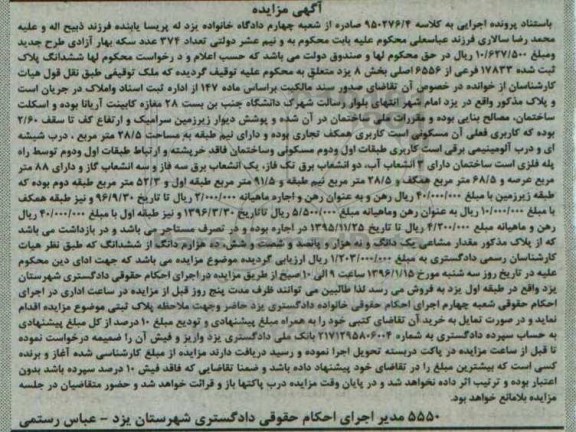 آگهی مزایده
باستناد پرونده اجرایی به کلاسه ۹۵۰۲۷۶/۴ صادره از شعبه چهارم دادگاه خانواده یزد له پریسا پاینده فرزند ذبیح اله و علیه
محمد رضا سالاری فرزند عباسعلی محکوم علیه بابت محکوم به و نیم عشر دولتی تعداد ۳۷۴ عدد سکه بهار آزادی طرح جدید
ومبلغ ۱۰/۶۲۷/۵۰۰ ریال در حق محکوم لها و صندوق دولت می باشد که حسب اعلام و د رخواست محکوم لها ششدانگ پلاک
ثبت شده ۱۷۸۳۳ فرعی از ۶۵۵۶ اصلی بخش ۸ یزد متعلق به محکوم علیه توقیف گردیده که ملک توقیفی طبق نقل قول هیات
کارشناسان از خوانده در خصوص آن تقاضای صدور سند مالکیت براساس ماده ۱۴۷ از اداره ثبت اسناد واملاک در جریان است
و پلاک مذکور واقع در یزد امام شهر انتهای بلوار رسالت شهرک دانشگاه جنب بن بست ۲۸ مغازه کابینت آریانا بوده و اسکلت
ساختمان، مصالح بنایی بوده و مقررات ملی ساختمان در آن شده و پوشش دیوار زیرزمین سرامیک و ارتفاع کف تا سقف ۲/۶۰
بوده که کاربری فعلی آن مسکونی است کاربری همکف تجاری بوده و دارای نیم طبقه به مساحت ۳۸/۵ متر مربع ، درب شیشه
ای و درب آلومینیمی برقی است کاربری طبقات اول ودوم مسکونی وساختمان فاقد خرپشته و ارتباط طبقات اول ودوم توسط راه
پله فلزی است ساختمان دارای ۳ انشعاب آب، دو انشعاب برق تک فاز، یک انشعاب برق سه فاز و سه انشعاب گاز و دارای ۸۸ متر
مربع عرصه و ۶۸/۵ متر مربع همکف و ۳۸/۵ متر مربع نیم طبقه و ۹۱/۵ متر مربع طبقه اول و ۵۳/۳ متر مربع طبقه دوم بوده که
طبقه زیرزمین با مبلغ ۴۰/۰۰۰/۰۰۰ ریال رهن و به عنوان رهن و اجاره ماهیانه ۲/۰۰۰/۰۰۰ ریال تا تاریخ ۹۶/۹/۳۰ و نیز طبقه همکف
با مبلغ ۱۰/۰۰۰/۰۰۰ ریال به عنوان رهن وماهیانه مبلغ ۵/۵۰۰/۰۰۰ ریال تاتاریخ ۱۳۹۶/۳/۳۰ و نیز طبقه اول با مبلغ ۴۰/۰۰۰/۰۰۰ ریال
رهن و ماهیانه مبلغ ۴/۳۰۰/۰۰۰ ریال تا تاریخ ۱۳۹۵/۱۱/۲۵ در اجاره بوده و در تصرف مستاجر می باشد و در بازداشت می باشد
که از پلاک مذکور مقدار مشاعی یک دانگ و نه هزار و پانصد و شصت و هش ده هزارم دانگ از ششدانگ که طبق نظر هیات
کارشناسان رسمی دادگستری به مبلغ ۱/۲۰۳/۰۰۰/۰۰۰ ریال ارزیابی گردیده موضوع مزایده می باشد که جهت ادای دین محکوم
علیه در تاریخ روز سه شنبه مورخ ۱۳۹۶/۱/۱۵ ساعت ۹ الی ۱۰ صبح از طریق مزایده دراجرای احکام حقوقی دادگستری شهرستان
یزد واقع در طبقه اول یزد به فروش می رسد لذا طالبین می توانند ظرف مدت پنج روز قبل از مزایده در ساعت اداری در اجرای
احکام حقوقی شعبه چهارم اجرای احکام حقوقی خانواده دادگستری یزد حاضر وجهت ملاحظه پلاک ثبتی موضوع مزایده اقدام
نماید و در صورت تمایل به خرید آن تقاضای کتبی خود را به همراه مبلغ پیشنهادی و تودیع مبلغ ۱۰ درصد از کل مبلغ پیشنهادی
به حساب سپرده دادگستری به شماره ۲۱۷۱۲۹۵۸۰۶۰۰۴ بانک ملی دادگستری یزد واریز و فیش آن را ضمیمه درخواست نموده
تا قبل از ساعت مزایده در پاکت دربسته تحویل اجرا نموده و رسید دریافت دارند مزایده از مبلغ کارشناسی شده آغاز و برنده
کسی است که بیشترین مبلغ را در تقاضای خود پیشنهاد داده باشد و ضمنا تقاضایی که فاقد فیش ۱۰ درصد سپرده باشد بدون
اعتبار بوده و ترتیب اثر داده نخواهد شد و در پایان وقت مزایده درب پاکتها باز و قرائت خواهد شد و حضور متقاضیان در جلسه
مزایده بلامانع خواهد بود.
۵۵۵۰ مدیر اجرای احکام حقوقی دادگستری شهرستان یزد - عباس رستمی